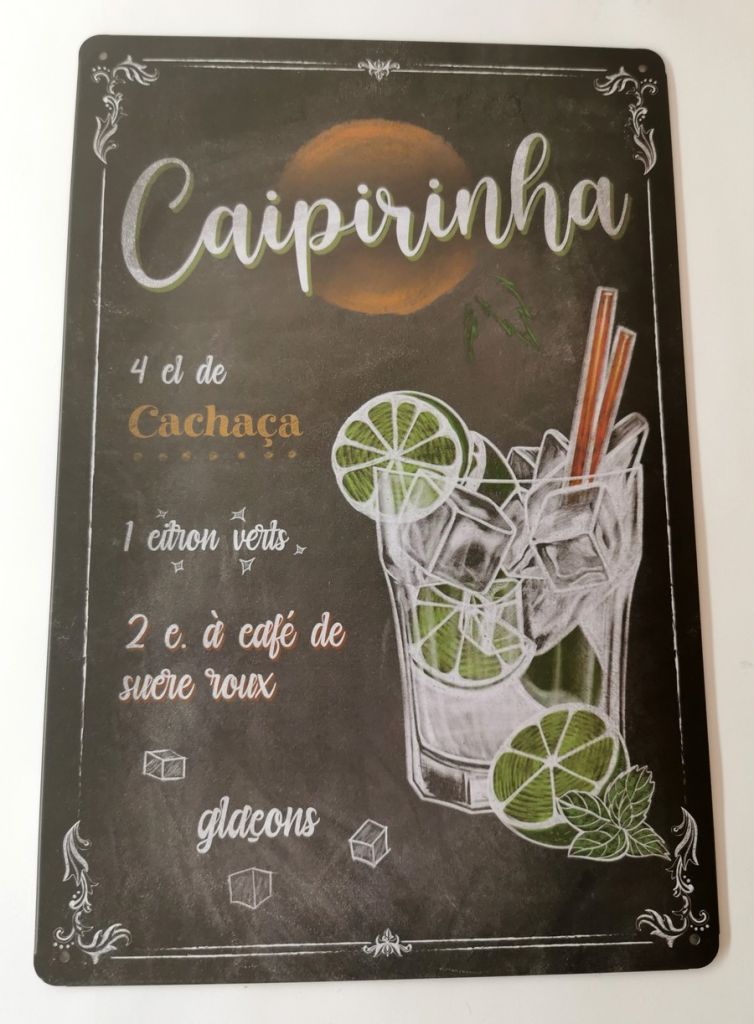 Caipirinha
4 cl de
Cachaça
1 citron verts
2 c. à café de
sucre roux
glaçons